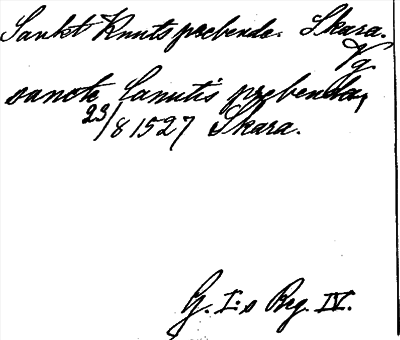 Sankt Knuts prebende. Skara.
Vg.
sancte Canuti's prebenda,
23/8 1527 Skara.
G. I:s Reg. IV.